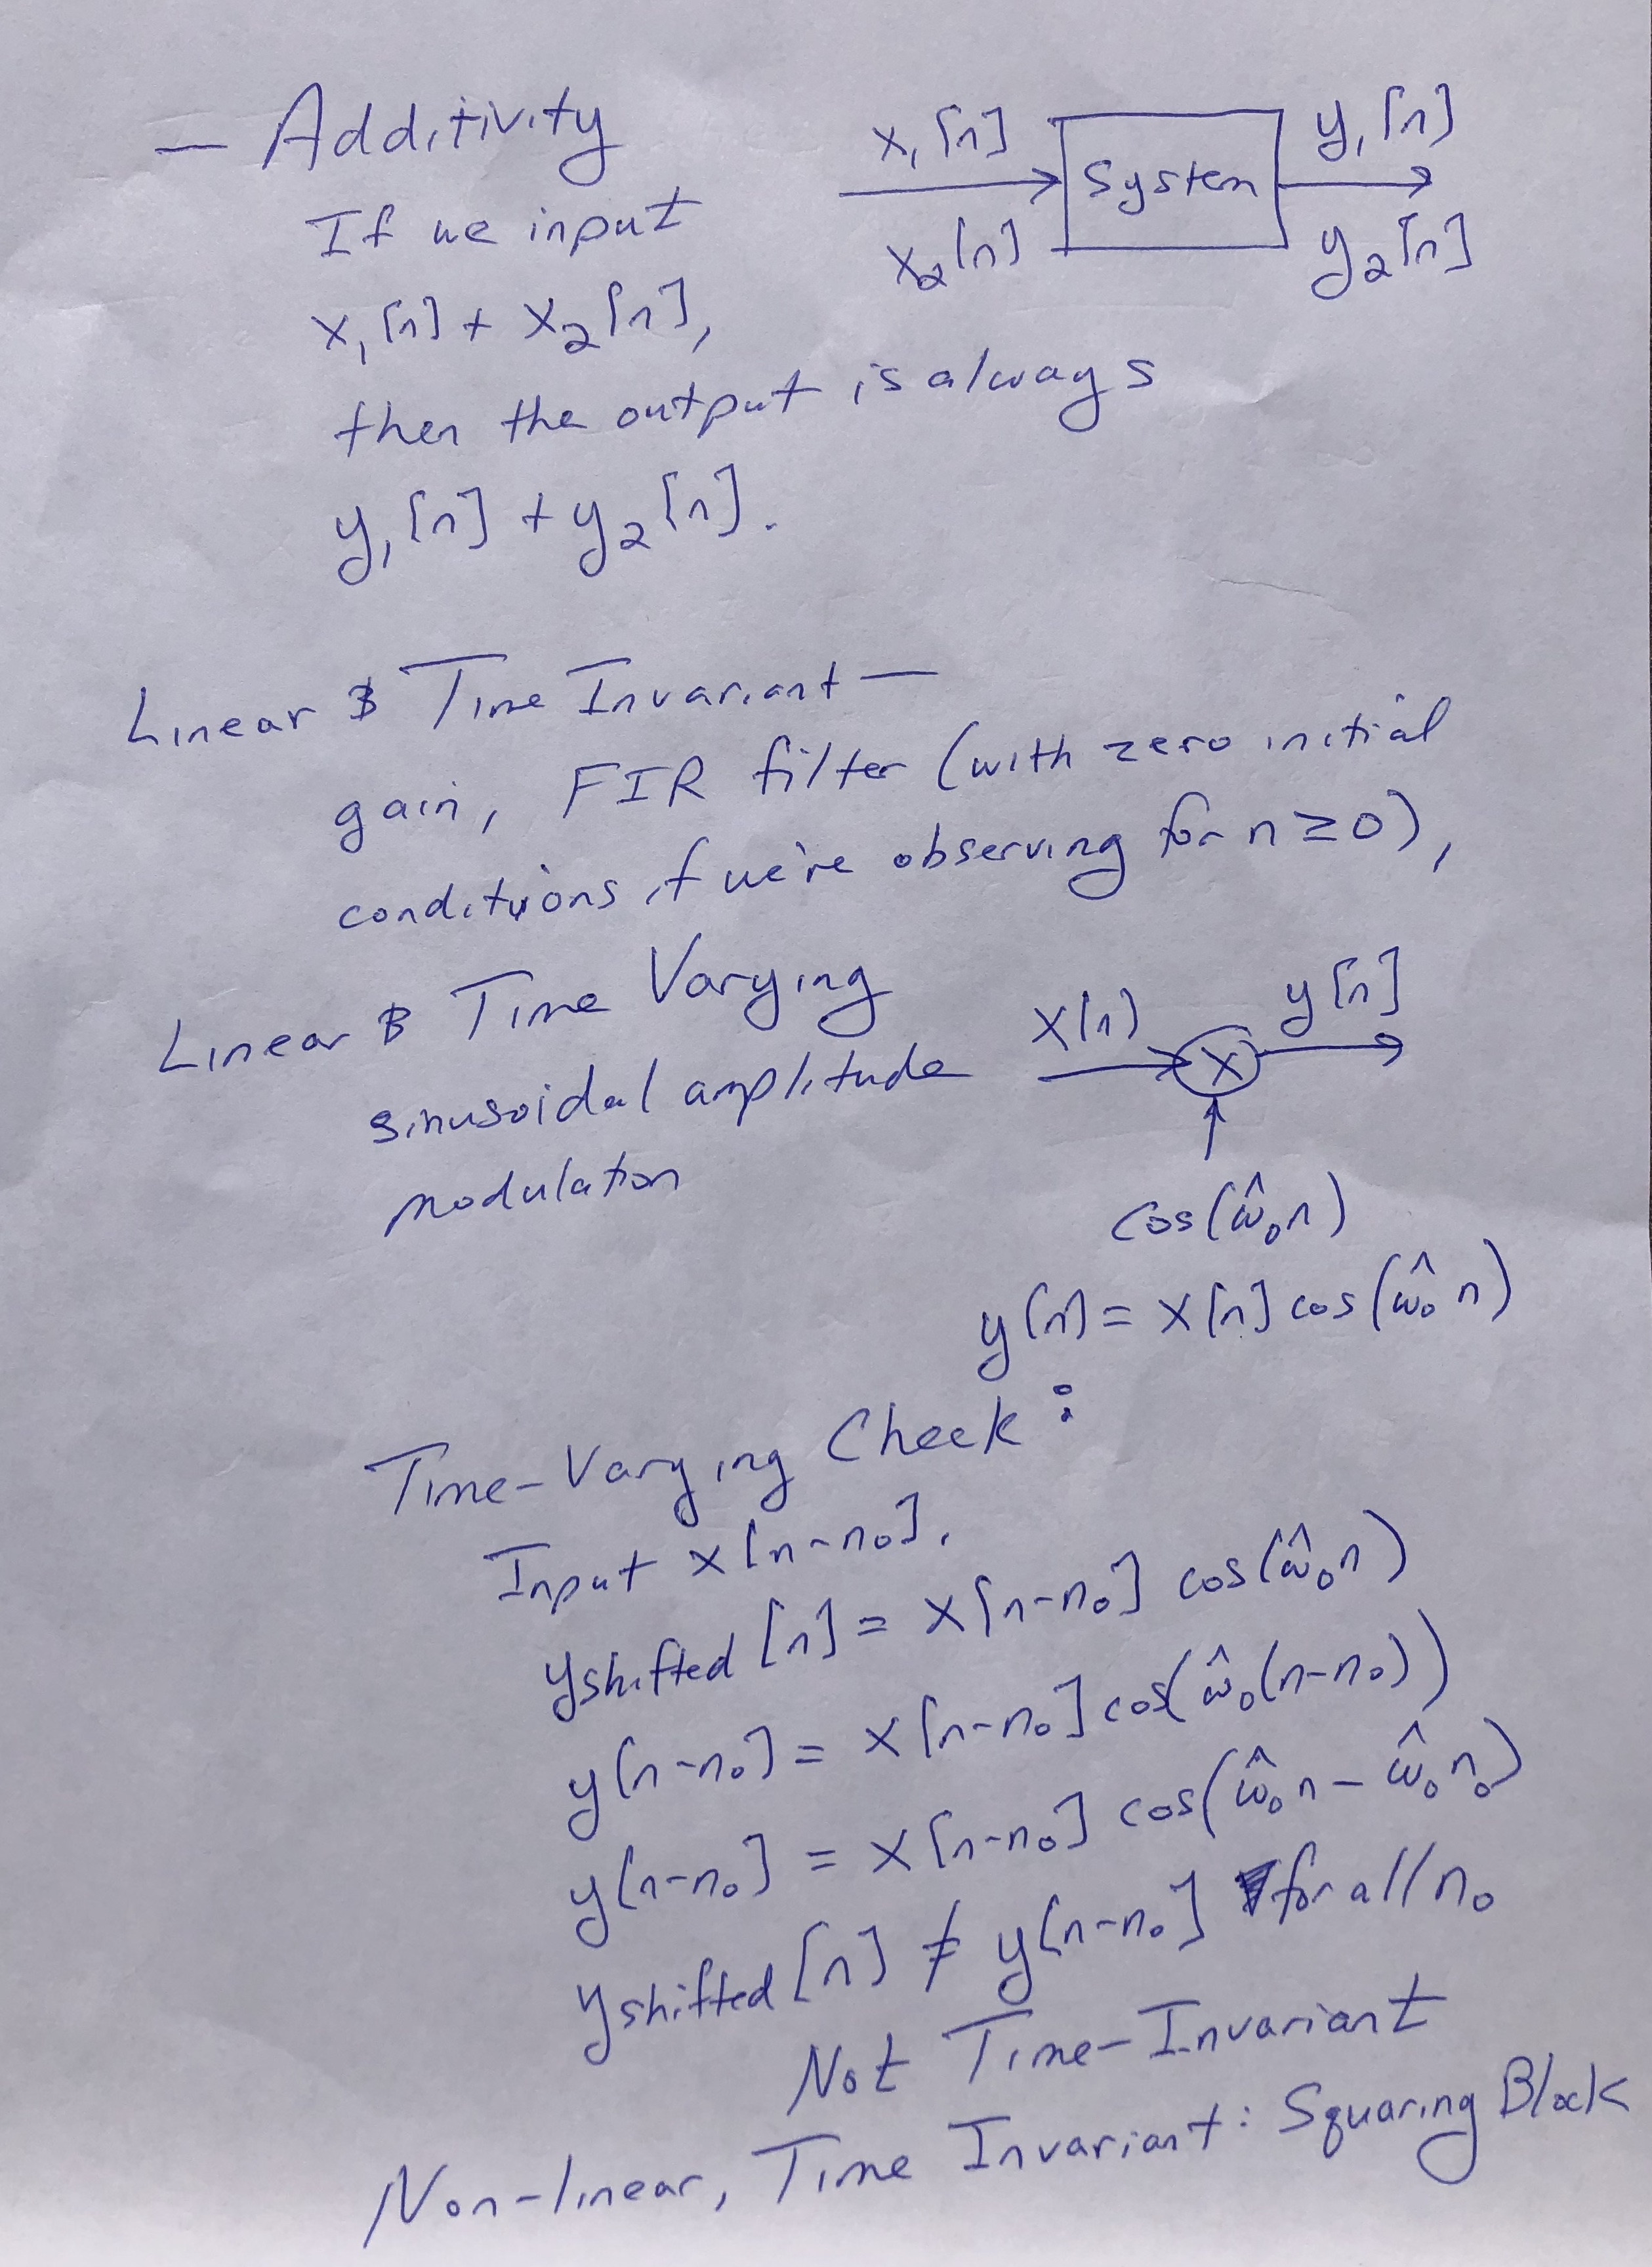 — Additivity
x₁[n]
System
y₁[n]
x₂[n]
y₂[n]
If we input
x₁[n] + x₂[n],
then the output is always
y₁[n] + y₂[n].
Linear & Time Invariant —
gain, FIR filter (with zero initial
conditions if we're observing for n ≥ 0),
Linear & Time Varying
sinusoidal amplitude
modulation
x[n]
X
y[n]
cos(ω̂₀n)
y[n] = x[n] cos(ω̂₀ n)
Time-Varying Check:
Input x[n-n₀].
yshifted [n] = x[n-n₀] cos(ω̂₀n)
y[n-n₀] = x[n-n₀] cos(ω̂₀(n-n₀))
y[n-n₀] = x[n-n₀] cos(ω̂₀n - ω̂₀n₀)
yshifted [n] ≠ y[n-n₀] for all n₀
Not Time-Invariant
Non-linear, Time Invariant: Squaring Block